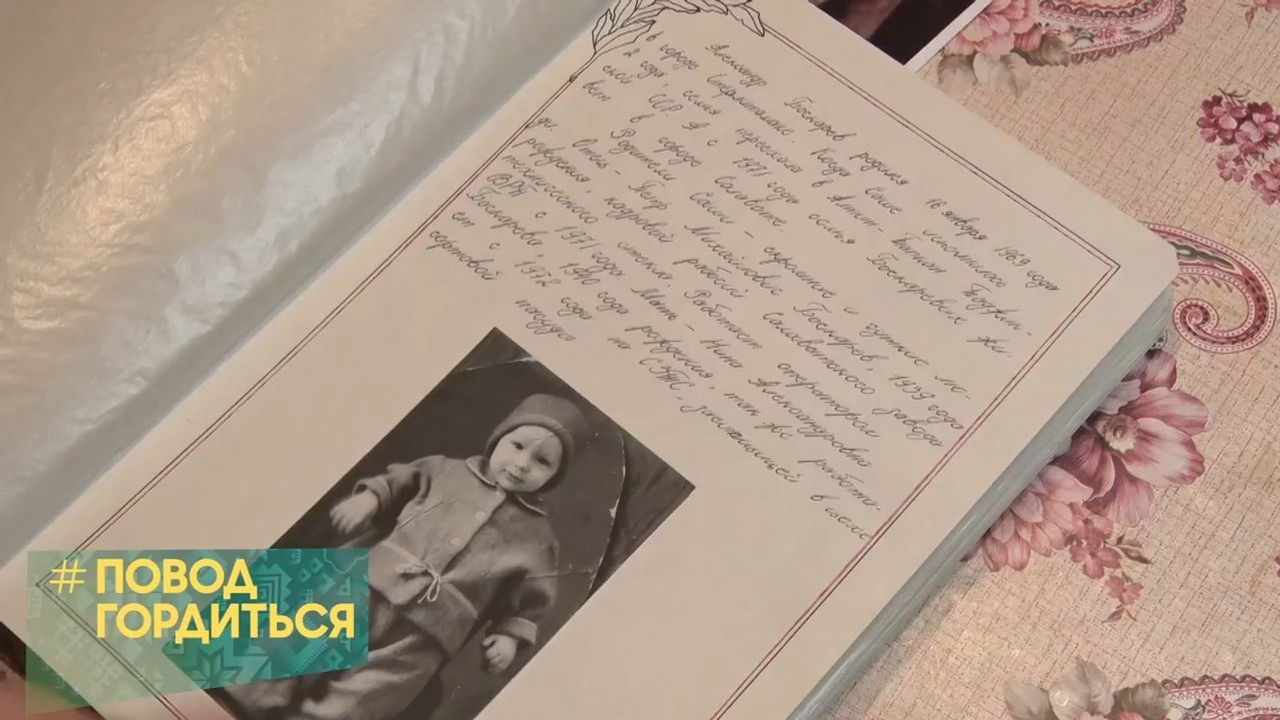 Александр Боскаров родился 16 января 1969 года
в городе Стерлитамаке. Когда Саше исполнилось
2 года, семья переехала в
ской ССР. А с 1971 года семья Боскаровых жи-
вет в городе Салавате.
Родители Саши - скромные и чуткие лю-
ди. Отец - Петр Михайлович Боскаров, 1939 года
рождения, кадровый рабочий Салаватского завода
технического стекла. Работает оператором
с 1971 года. Мать - Нина Александровна
Боскарова, 1940 года рождения, так же работа-
ет с 1972 года на в цехе
сортовой посуды
# ПОВОД
ГОРДИТЬСЯ